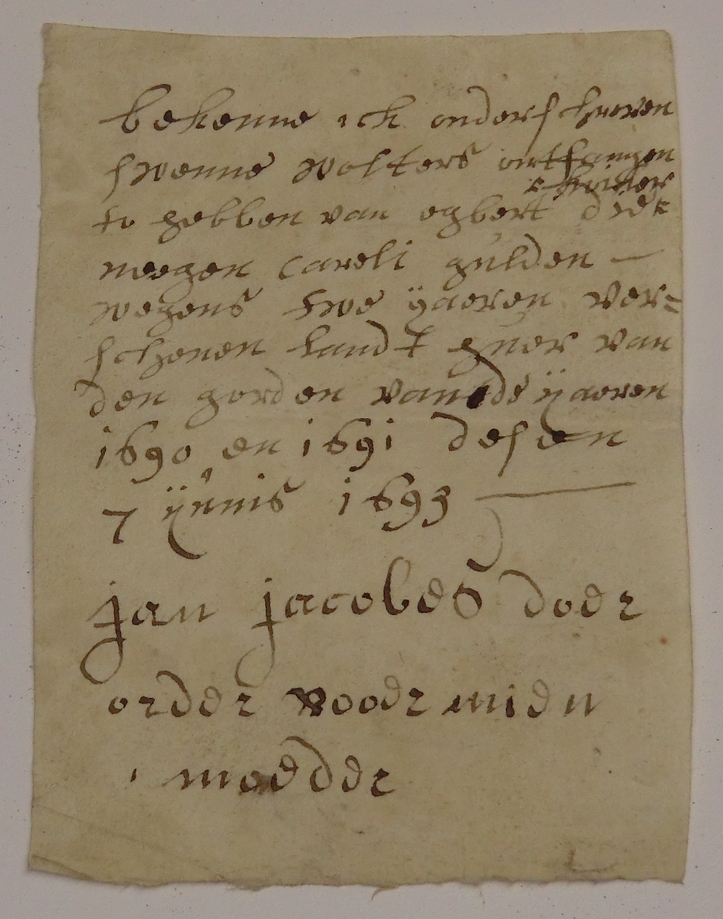 bekenne ick onderschreven
swenne wolters ontfangen
to hebben van egbert
neegen Caroli gulden —
wegens twe yaeren ver=
schenen landt huer van
den gorden van de yaeren
1690 en 1691 desen
7 yunis 1693 —
jan jacobes doer
order voor mien
moeder